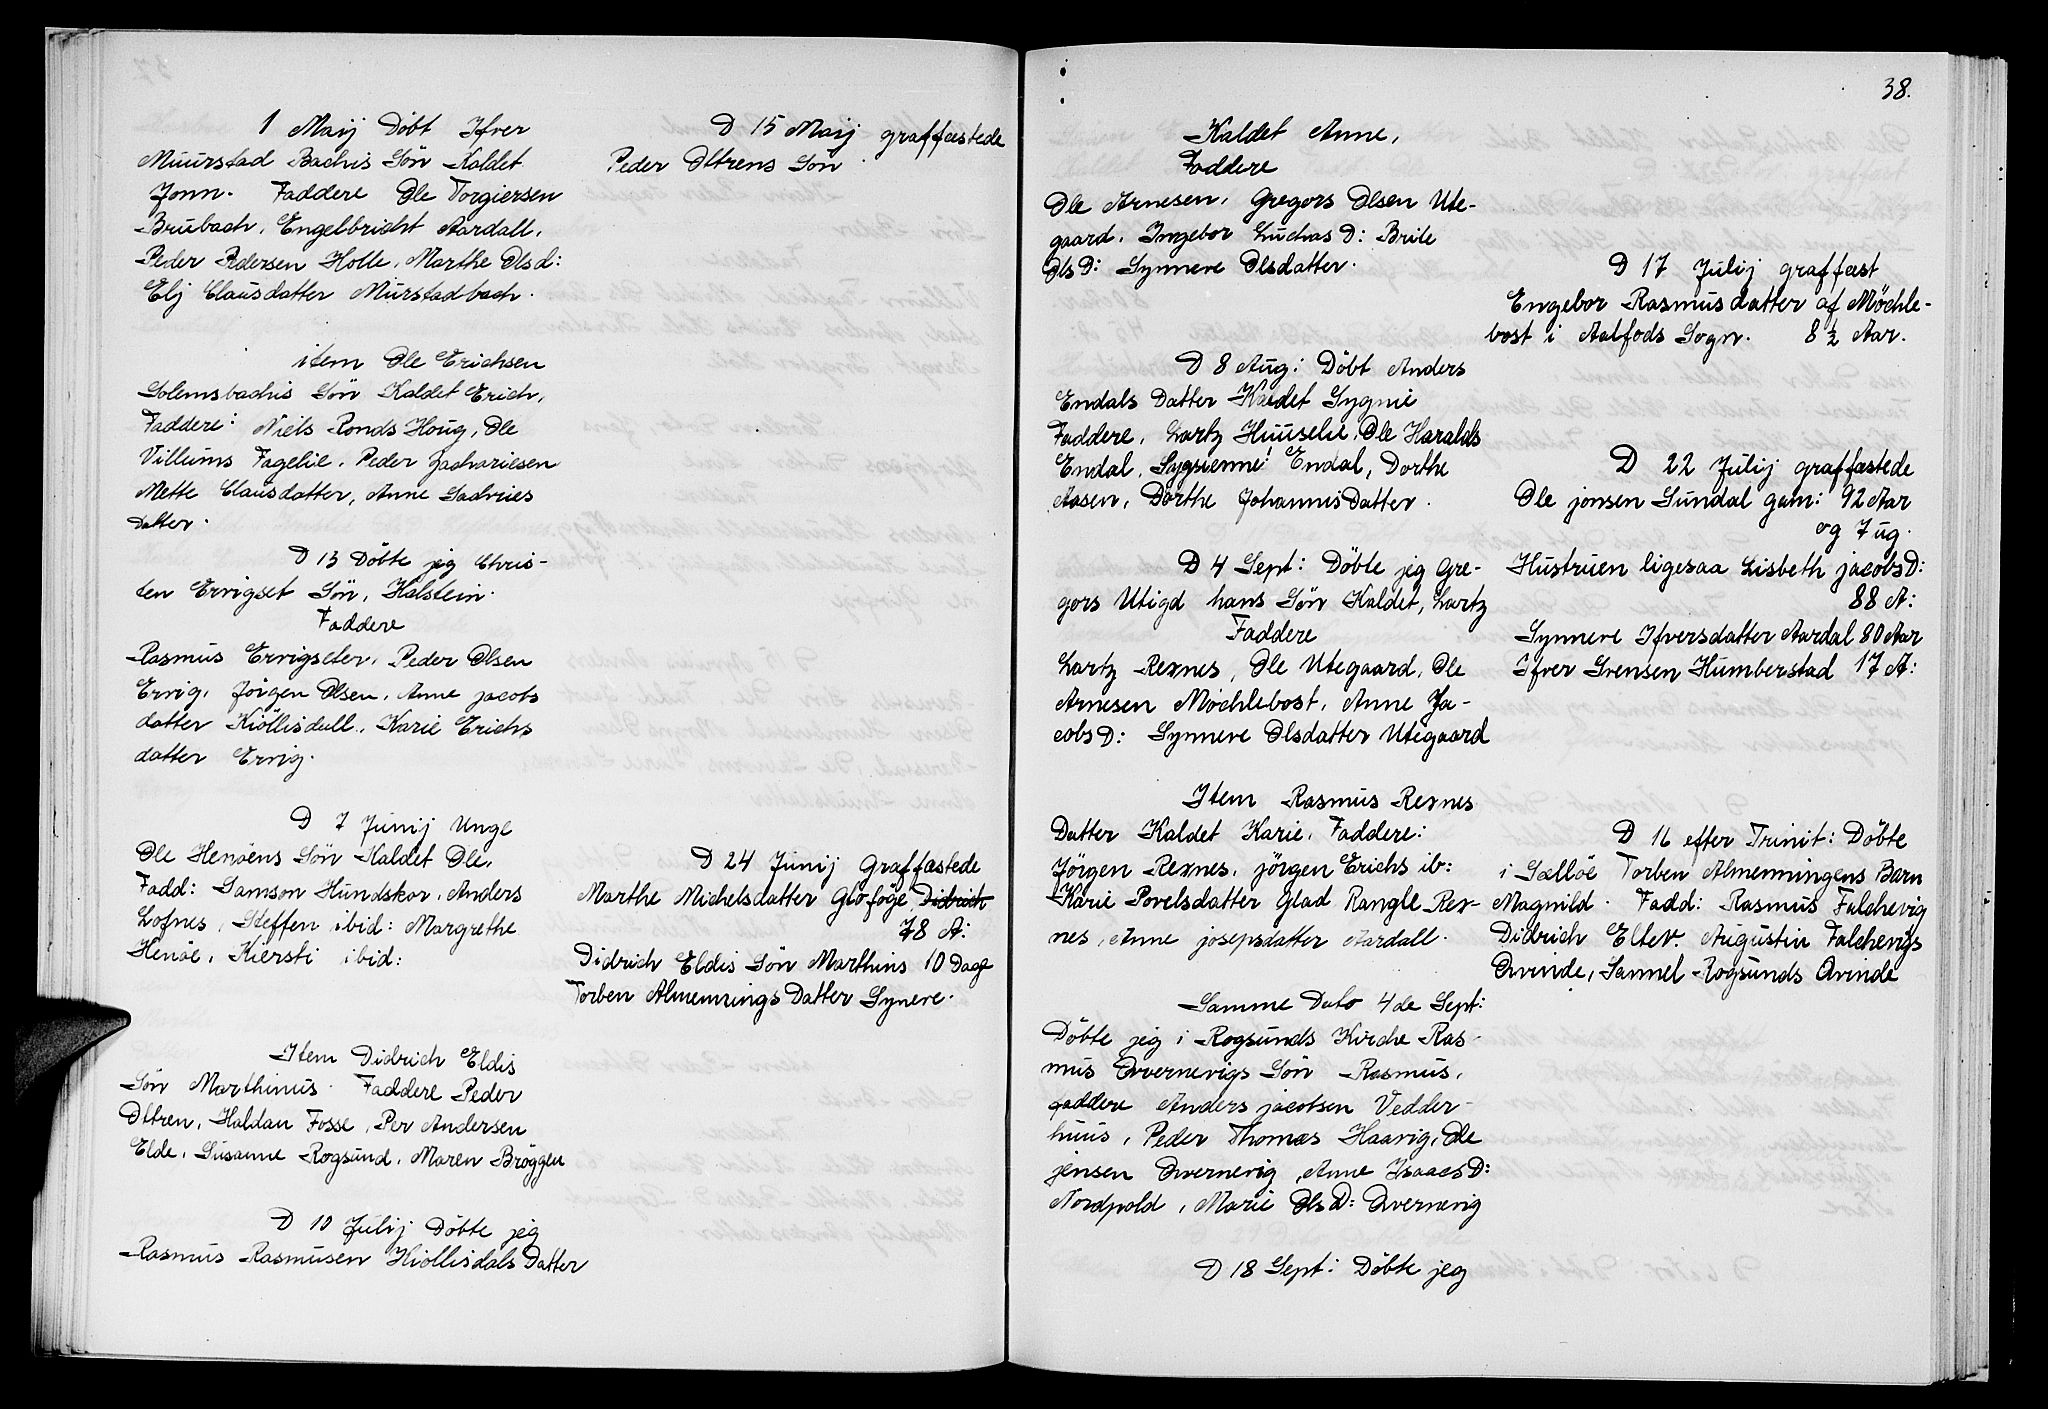 1 Maij Döbt Ifver
Muurstad Bachis Sön Kaldet
Jonn. Faddere Ole Torgiersen
Brubach, Engelbricht Aardall,
Peder Pedersen Holle, Marthe Olsd:
Elj Clausdatter Murstadbach.
item Ole Erichsen
Solemsbachis Sön Kaldet Erich,
Faddere: Niels Ronds Houg, Ole
Villums Fagelie, Peder Zachariesen
Mette Clausdatter, Anne Sadvries
datter.
D 13 Döbte jeg Chris-
ten Errigset Sön, Halstein.
Faddere
Rasmus Errigseter, Peder Olsen
Errig, Jörgen Olsen, Anne jacobs
datter Kiöllisdall, Karie Erichs
datter Errig.
D 7 Junij Unge
Ole Henöens Sön Kaldet Ole,
Fadd: Samson Hundskor, Anders
Lofnes, Steffen ibid: Margrethe
Henöe, Kiersti ibid:
Item Didrich Eldis
Sön Marthinus. Faddere Peder
Ottren, Haldan Fosse, Per Andersen
Elde, Susanne Rogsund, Maren Bröggen
D 10 Julij Döbte jeg
Rasmus Rasmusen Kiöllisdals Datter
D 15 Maij graffæstede
Peder Ottrens Sön
D 24 Junij Graffæstede
Marthe Michelsdatter Gloföge Didrich
78 A:
Didrich Eldis Sön Marthins 10 Dage
Torben Almennings Datter Synere.
38.
Kaldet Anne,
Faddere
Ole Arnesen, Gregors Olsen Ute-
gaard, Ingebor Luchas D: Brite
Ols D: Synneve Olsdatter.
D 8 Aug: Döbt Anders
Endals Datter Kaldet Sygnie
Faddere, Lartz Huuselie, Ole Haralds
Endal, Sygsienne! Endal, Dorthe
Aasen, Dorthe Johannis Datter.
D 4 Sept: Döbte jeg Gre-
gors Utigd hans Sön Kaldet, Lartz
Faddere
Lartz Rexnes, Ole Utegaard, Ole
Arnesen Möchlebost, Anne Ja-
cobs D: Synneve Olsdatter Utegaard
Item Rasmus Rexnes
Datter Kaldet Karie, Faddere:
Jörgen Rexnes, jörgen Erichs ib:
Karie Povelsdatter Glad Rangle Rex-
nes, Anne josepsdatter Aardall.
Samme Dato 4de Sept:
Döbte jeg i Rogsunds Kirche Ras-
mus Qvernevigs Sön Rasmus,
faddere Anders jacobsen Vedder-
huus, Peder Thomæs Haavig, Ole
jensen Qvernevig, Anne Isaacs D:
Nordpold, Marie Ols D: Qvernevig
D 18 Sept: Döbte jeg
D 17 Julij graffæst
Engebor Rasmusdatter af Möchle-
bost i Aalfods Sogn. 8 ½ Aar.
D 22 Julij graffæstede
Ole jonsen Sundal gam: 92 Aar
og 7 ug.
Hustruen ligesaa Lisbeth jacobs D:
88 A:
Synneve Ifversdatter Aardal 80 Aar
Ifver Svensen Humberstad 17 A:
D 16 efter Trinit: Döbte
i Selløe Torben Almenningens Barn
Magnild. Fadd: Rasmus Falchevig
Didrich Eltev. Augustin Falchevigs
Qvinde, Samuel Rogsunds Qvinde